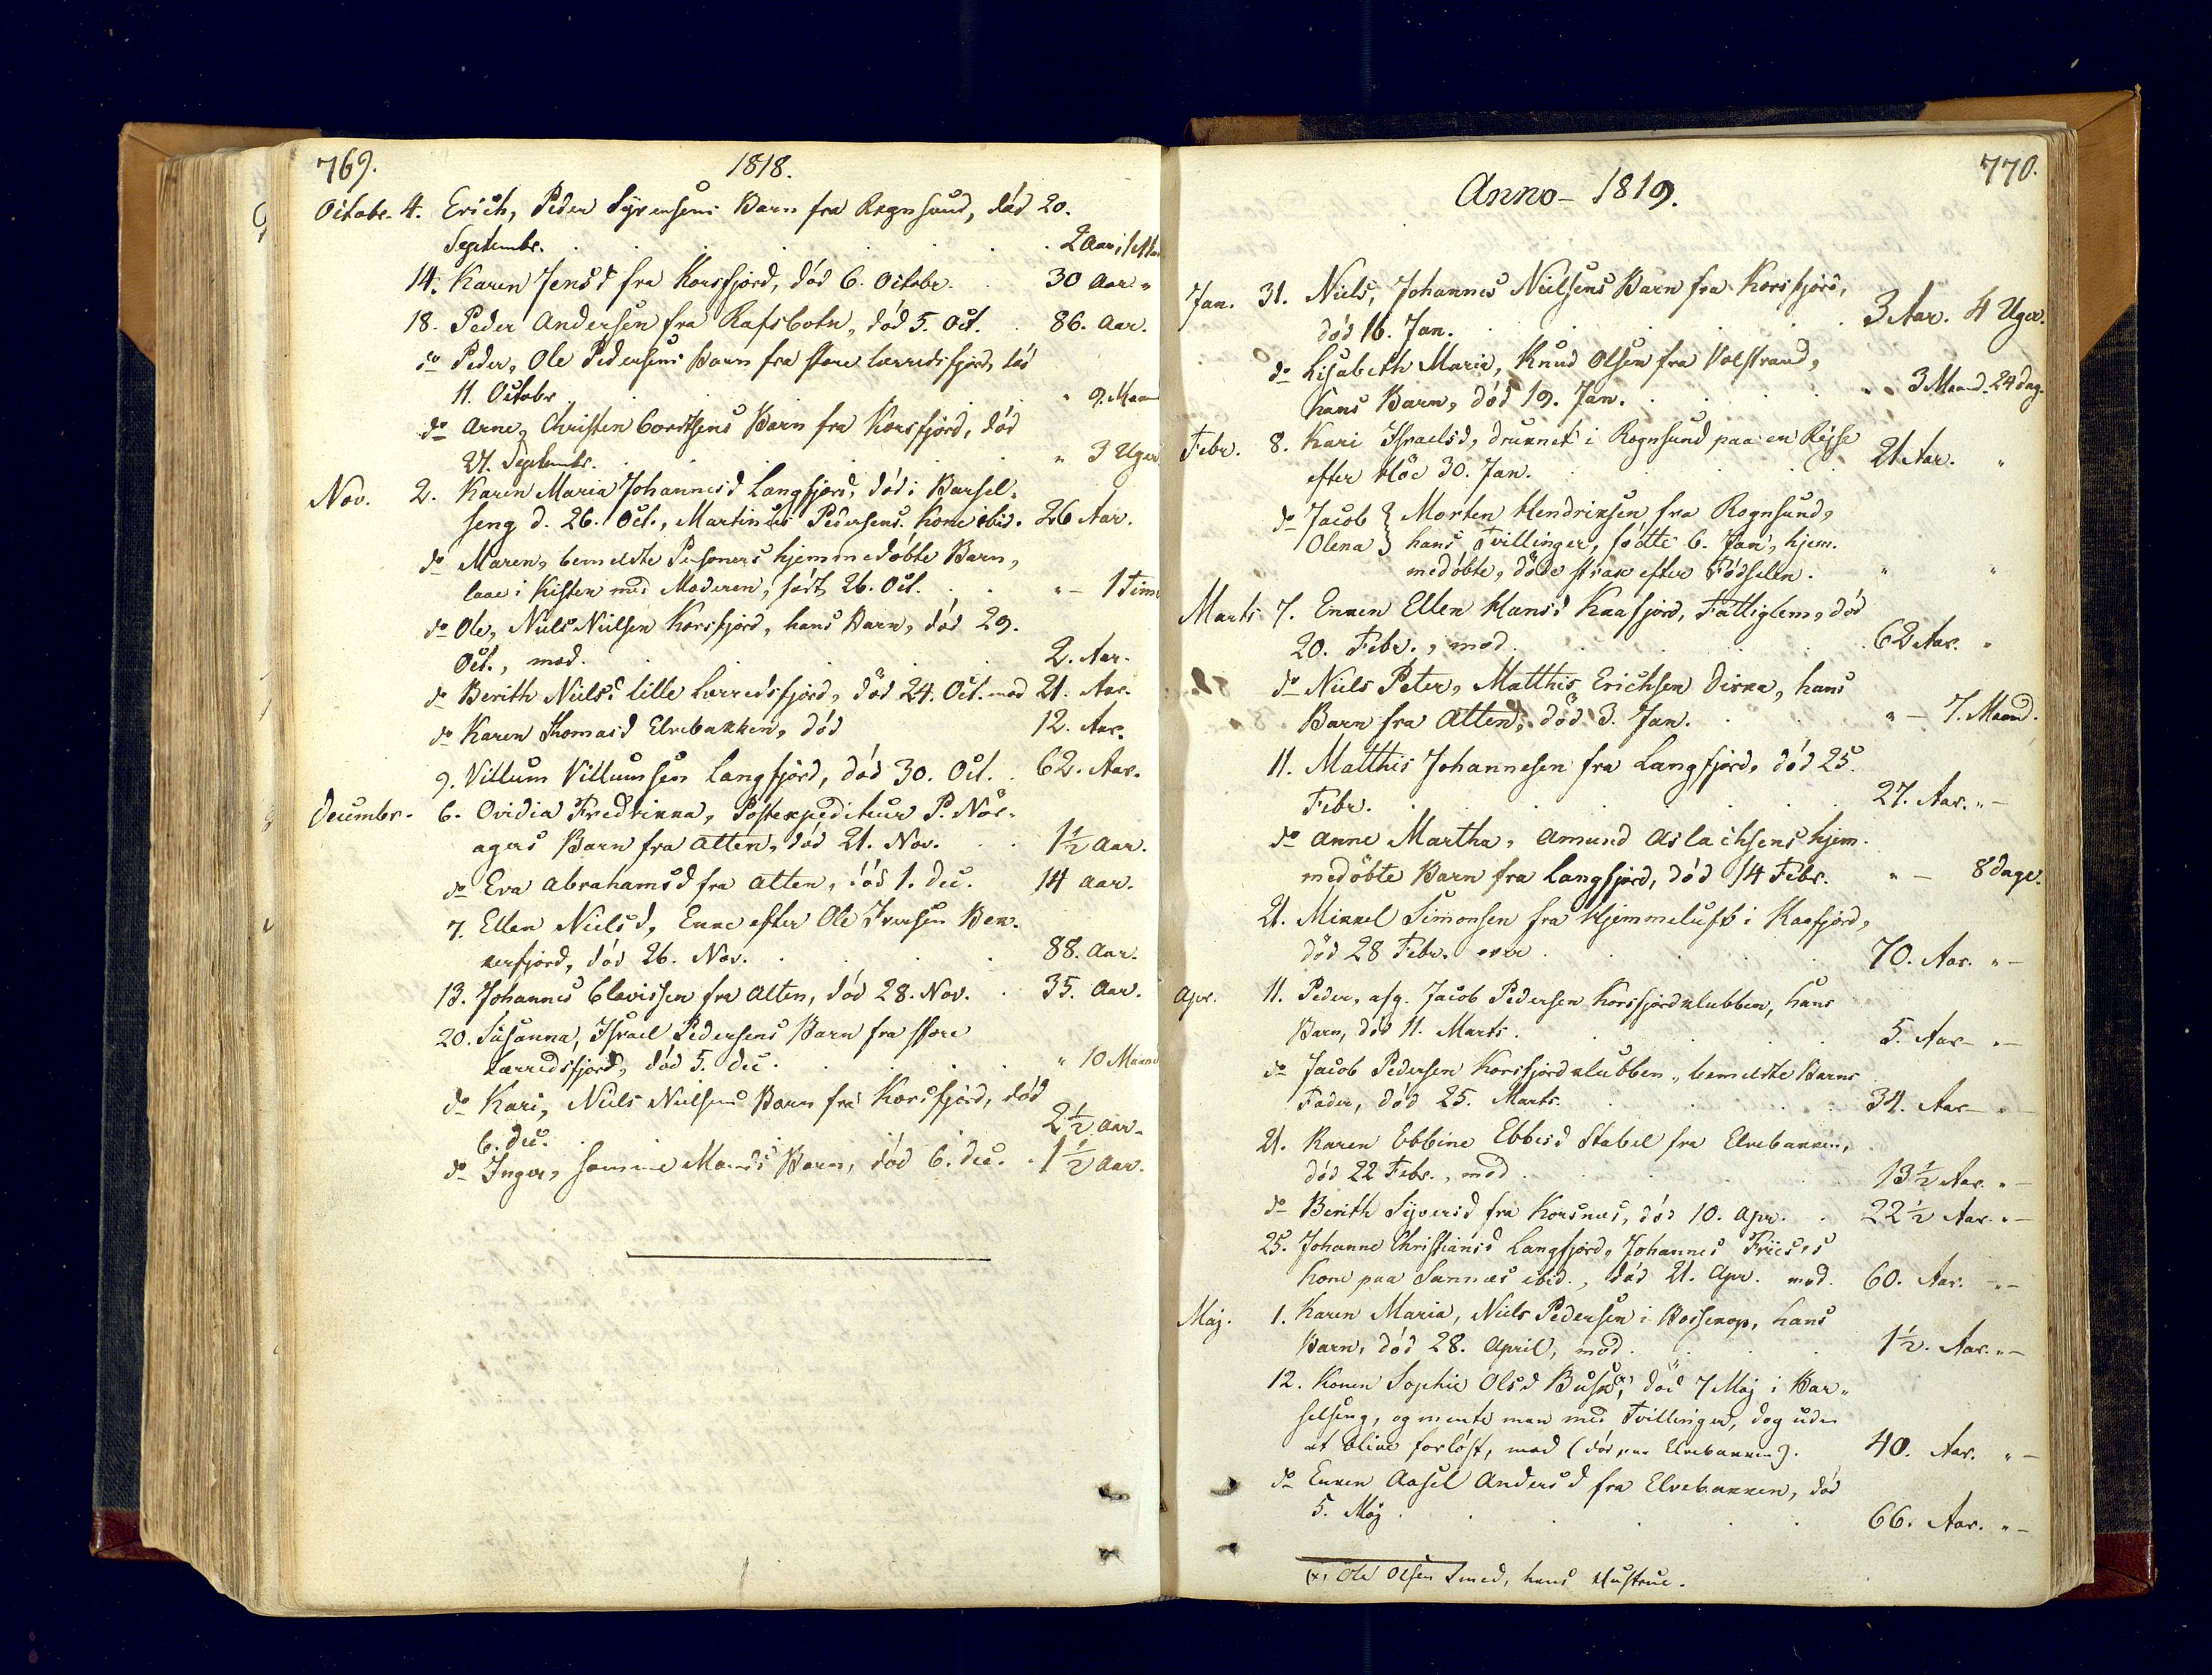 769.
1818.
Octobr. 4. Erich, Peder Syvensens Barn fra Rognsund, død 20.
Septembr. 2 Aar,
14. Karen Jensd fra Korsfjord, død 6. Octobr. 30 Aar "
18. Peder Andersen fra Rafsbotn, død 5. Oct. 86. Aar.
do Peder, Ole Pedersens Barn fra store Lerredsfjord, død
11. Octobr. " 9. Maan
do Arne, Christen Cordtsens Barn fra Korsfjord, død
27. Septembr. " 3 Uger
Nov. 2. Karen Maria Johannesd Langfjord, død i Barsel-
seng d. 26. Oct., Martinus Pedersens Kone ibid. 26 Aar.
do Maren, bemeldte Personers hjemmedøbte Barn,
laae i Kisten med Moderen, født 26. Oct. " — 1 Time
do Ole, Niels Nielsen Korsfjord, hans Barn, død 29.
Oct., mod. 2. Aar.
do Berith Nielsd lille Lerredsfjord, død 24. Oct. mod 21. Aar.
do Karen Thomasd Elvebakken, død 12. Aar.
9. Villum Villumsen Langfjord, død 30. Oct. 62. Aar.
Decembr. 6. Ovidia Fredrikka, Postexpediteur P. Nör-
agers Barn fra Alten, død 21. Nov. 1½ Aar.
do Eva Abrahamsd fra Alten, død 1. Dec. 14 Aar.
7. Ellen Nielsd, Enke efter Ole Iversen Bek-
kerfjord, død 26. Nov. 88. Aar.
13. Johannes Clavissen fra Alten, død 28. Nov. 35. Aar.
20. Susanna, Israel Pedersens Barn fra store
Lerredsfjord, død 5. Dec. " 10 Maan
do Kari, Niels Nielsens Barn fra Korsfjord, død
6. Dec. 2½ Aar.
do Inger, samme Mands Barn, død 6. Dec. 1½ Aar.
770.
Anno – 1819.
Jan. 31. Niels, Johannes Nielsens Barn fra Korsfjord,
død 16. Jan. 3 Aar. 4 Uger.
do Lisabeth Marie, Knud Olsen fra Volstrand,
hans Barn, død 19. Jan. " 3 Maand. 24 Dag.
Febr. 8. Kari Israelsd, druknet i Rognsund paa en Rejse
efter Höe 30. Jan. 21 Aar. "
do Jacob } Morten Hendriksen fra Rognsund,
Olena } hans Tvillinger, fødte 6. Jan., hjem-
medøbte, døde strax efter Fødselen. " "
Marts 7. Enken Ellen Hansd Kaafjord, Fattiglem, død
20. Febr., mod 62 Aar. "
do Niels Peter, Matthis Erichsen Dikka, hans
Barn fra Alten, død 3. Jan. " — 7. Maand.
11. Matthis Johannesen fra Langfjord, død 25.
Febr. 27. Aar. " —
do Anne Martha, Amund Aslachsens hjem-
medøbte Barn fra Langfjord, død 14 Febr. " — 8 Dage.
21. Mikkel Simonsen fra Hjemmeluft i Kaafjord,
død 28 Febr. over 70. Aar. " —
Apr. 11. Peder, afg. Jacob Pedersen Korsfjordklubben, hans
Barn, død 11. Marts. 5. Aar — " —
do Jacob Pedersen Korsfjordklubben, bemeldte Barns
Fader, død 25. Marts. 34. Aar — " —
21. Karen Ebbine Ebbesd Stabel fra Elvebakken,
død 22 Febr., mod 13½ Aar. " —
do Berith Syversd fra Korsnæs, død 10. Apr. 22½ Aar. " —
25. Johanne Christiansd Langfjord, Johannes Friis's
Kone paa Sannes ibid., død 21. Apr. mod. 60. Aar. " —
Maj. 1. Karen Maria, Niels Pedersen i Bossekop, hans
Barn, død 28. April, mod 1½. Aar. " —
12. Konen Sophie Olsd Busk (x), død 7 Maj i Bar-
selseng, og mente man med Tvillinger, dog uden
at blive forløst, mod (død paa Elvebakken). 40. Aar. " —
do Enken Aasel Andersd fra Elvebakken, død
5. Maj. 66. Aar. " —
(x) Ole Olsen Smed, hans Hustrue.